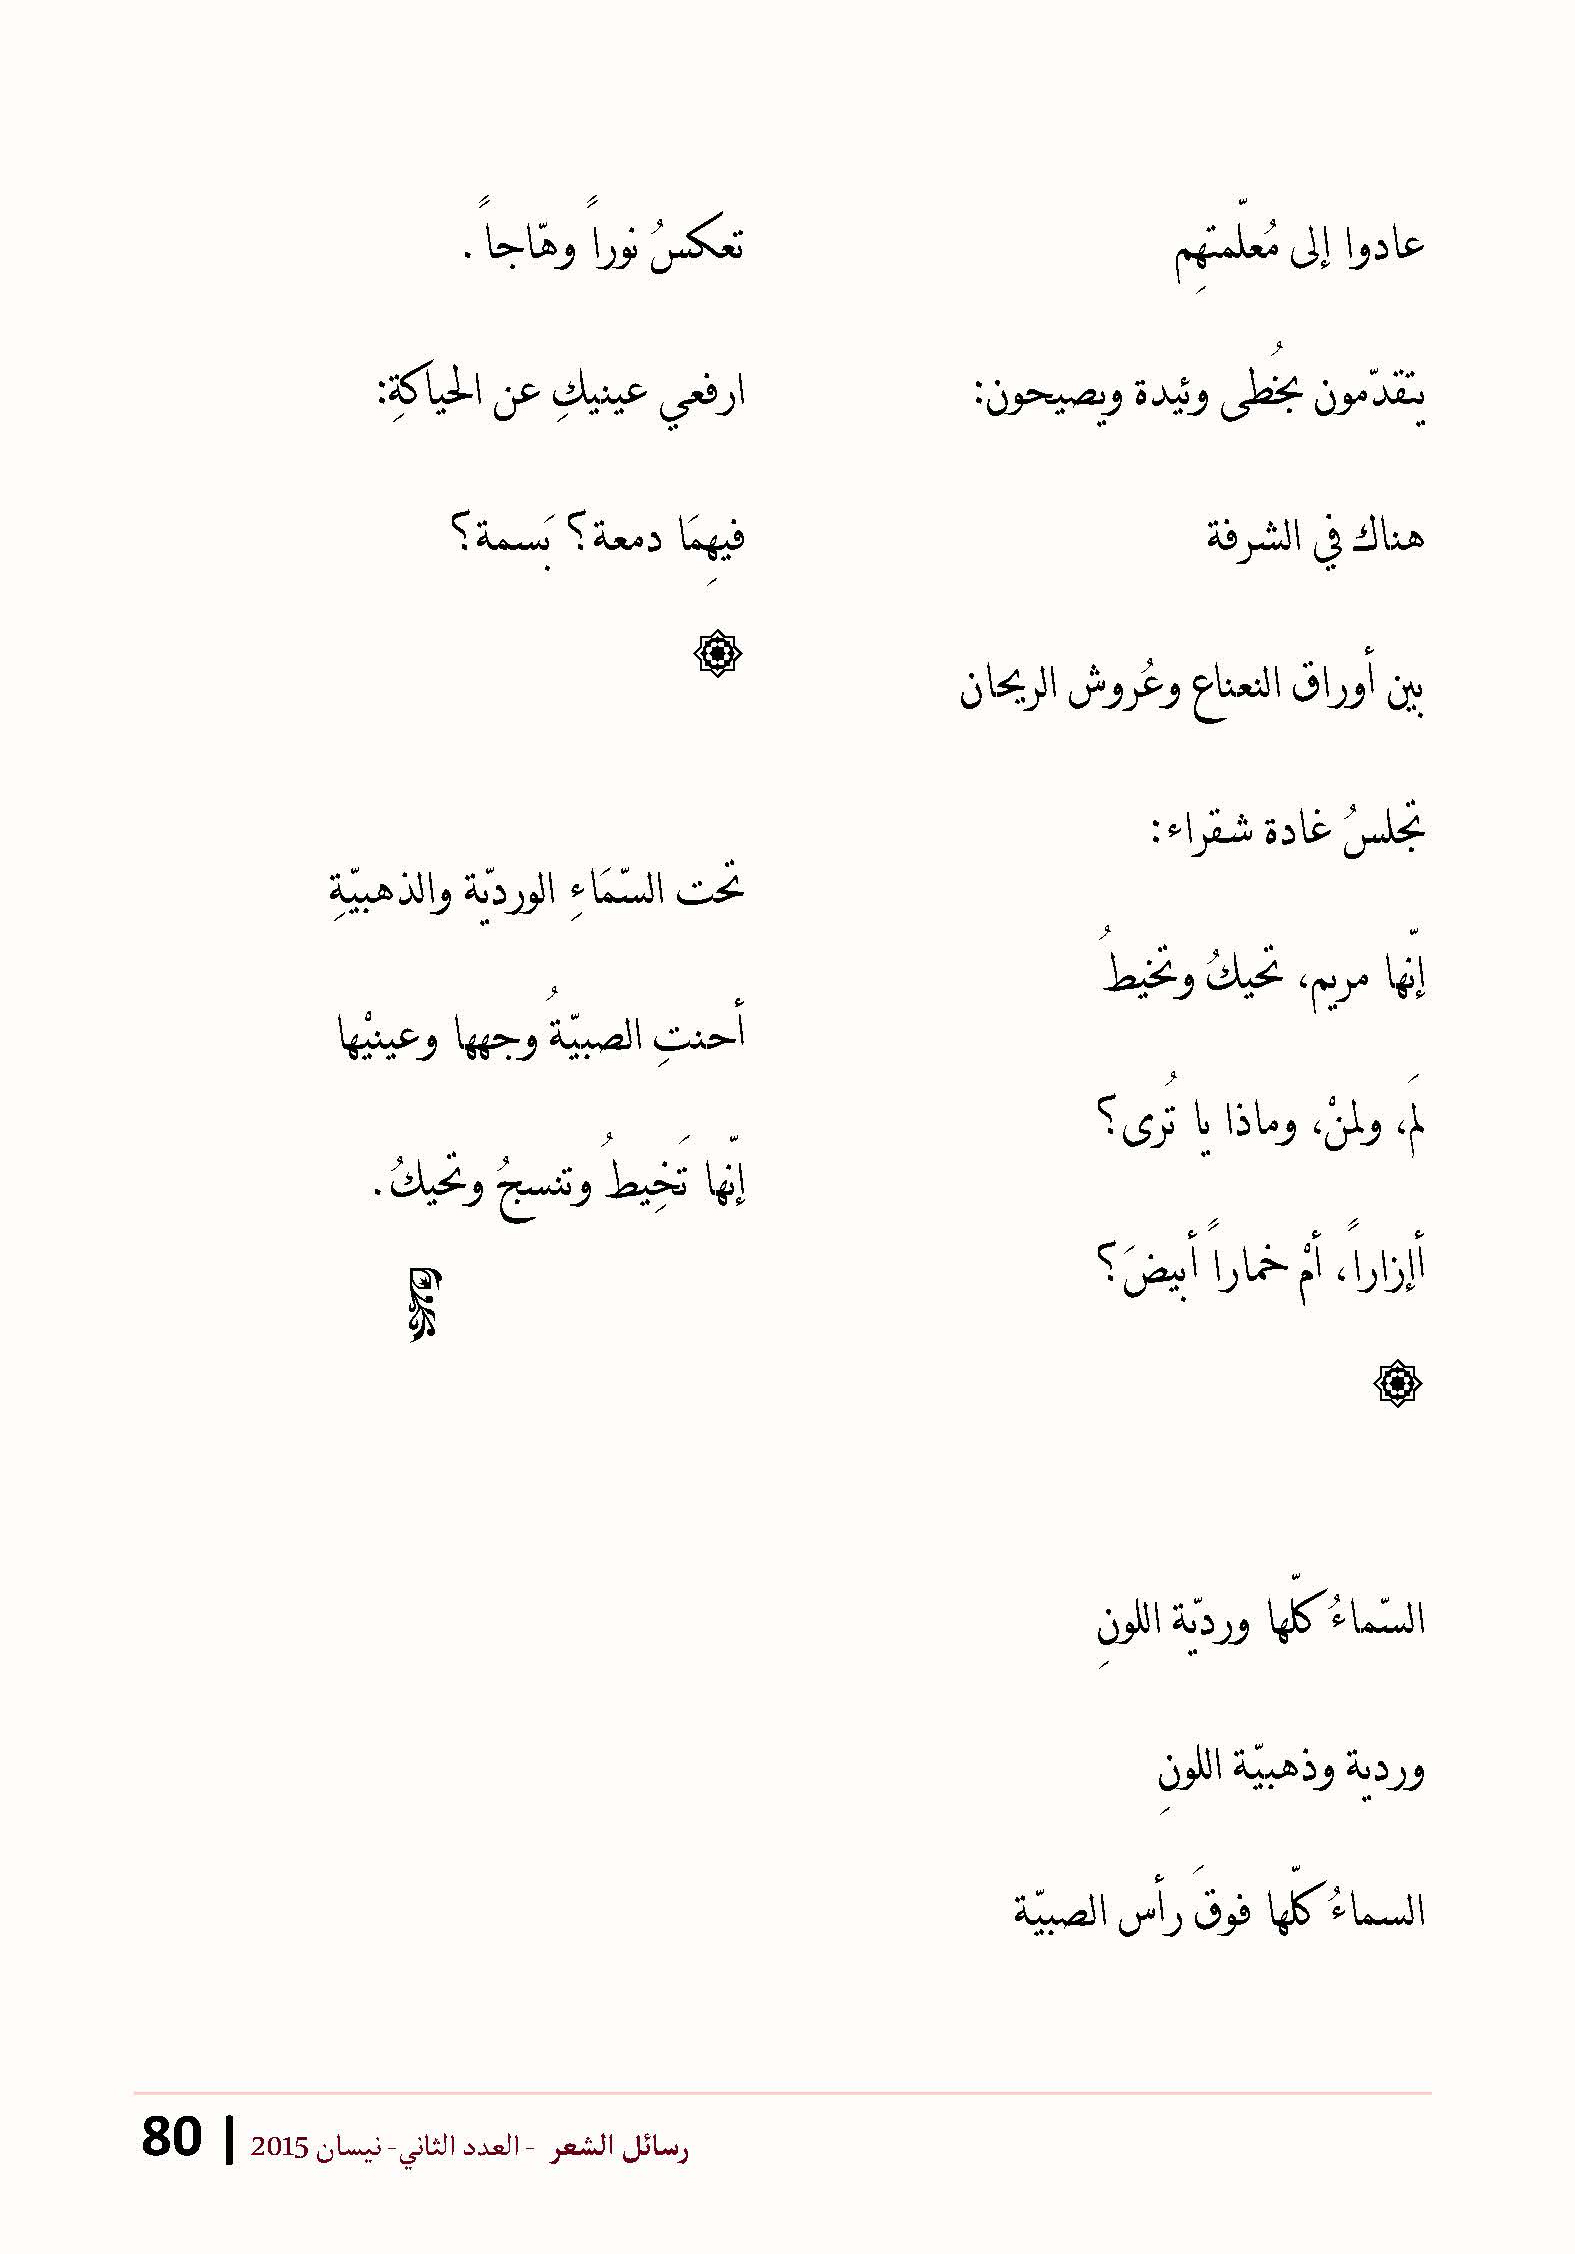 عادوا إلى مُعلّمتهِم
يتقدّمون بخُطى وئيدة ويصيحون:
هناك في الشرفة
بين أوراق النعناع وعُروش الريحان
تجلسُ غادة شقراء:
إنّها مريم، تحيكُ وتخيطُ
لمَ، ولمنْ، وماذا يا تُرى؟
أإزاراً، أمْ خماراً أبيضَ؟
السّماءُ كلّها ورديّة اللونِ
وردية وذهبيّة اللونِ
السماءُ كلّها فوقَ رأس الصبيّة
تعكسُ نوراً وهّاجاً .
ارفعي عينيكِ عن الحياكةِ:
فيهِمَا دمعة؟ بَسمة؟
تحت السّمَاءِ الورديّة والذهبيّةِ
أحنتِ الصبيّةُ وجهها وعينيْها
إنّها تَخِيطُ وتنسجُ وتحيكُ.
رسائل الشعر - العدد الثاني- نيسان 2015 | 80